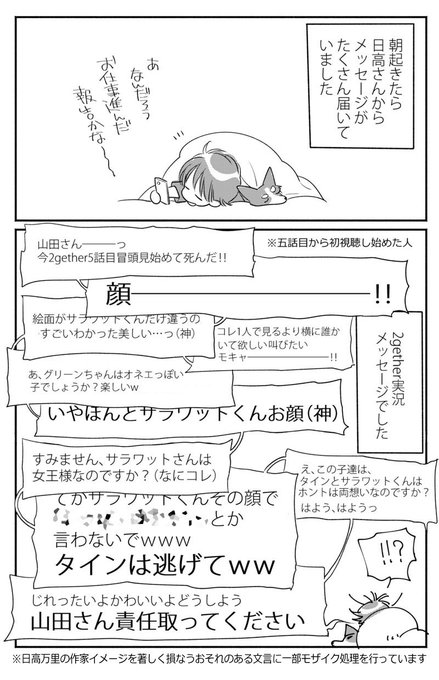 朝起きたら
日高さんから
メッセージが
たくさん届いて
いました
あ
なんだろう
お仕事進んだ
報告かな〜
※五話目から初視聴し始めた人
山田さん———っ
今2gether5話目冒頭見始めて死んだ!!
顔——————————!!
絵面がサラワットくんだけ違うの
すごいわかった美しい…っ(神)
コレ1人で見るより横に誰か
いて欲しい叫びたい
モキャー——————!!
2gether実況
メッセージでした
あ、グリーンちゃんはオネエっぽい
子でしょうか?楽しいw
いやほんとサラワットくんお顔(神)
すみません、サラワットさんは
女王様なのですか?(なにコレ)
え、この子達は、
タインとサラワットくんは
ホントは両想いなのですか?
はよう、はようっ
てかサラワットくんその顔で
とか
言わないでwww
タインは逃げてww
!!?
じれったいよかわいいよどうしよう
山田さん責任取ってください
※日高万里の作家イメージを著しく損なうおそれのある文言に一部モザイク処理を行っています